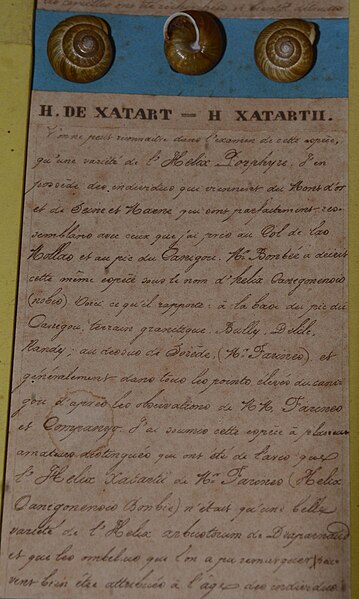 H. DE XATART = H XATARTII.
l'on ne peut reconnaitre dans l'examen de cette espèce,
qu'une variété de l'Helix Porphyre. J'en
possède des individus qui viennent du Mont d'or
et de Seine et Marne qui sont parfaitement res-
semblans avec ceux que j'ai pris au Col de las
Mollas et au pic du Canigou. Mr Bombée a décrit
cette même espèce sous le nom d'helix Canigonensis
(nobis) Voici ce qu'il rapporte: à la base du pic du
Canigou, terrain granitique. Bully, Delile,
Randy; au dessus de Sorède (Mr Farines) et
généralement dans tous les points élevés du cani-
gou d'après les observations de MM. Farines
et Companyo. J'ai soumis cette espèce à plusieurs
amateurs distingués qui ont été de l'avis que
l'Helix Xatartii de Mr Farines (Helix
Canigonensis Bombée) n'était qu'une belle
variété de l'Helix arbustorum de Draparnaud
et que les ombelus que l'on a pu remarquer peu-
vent bien être attribués à l'age des individus